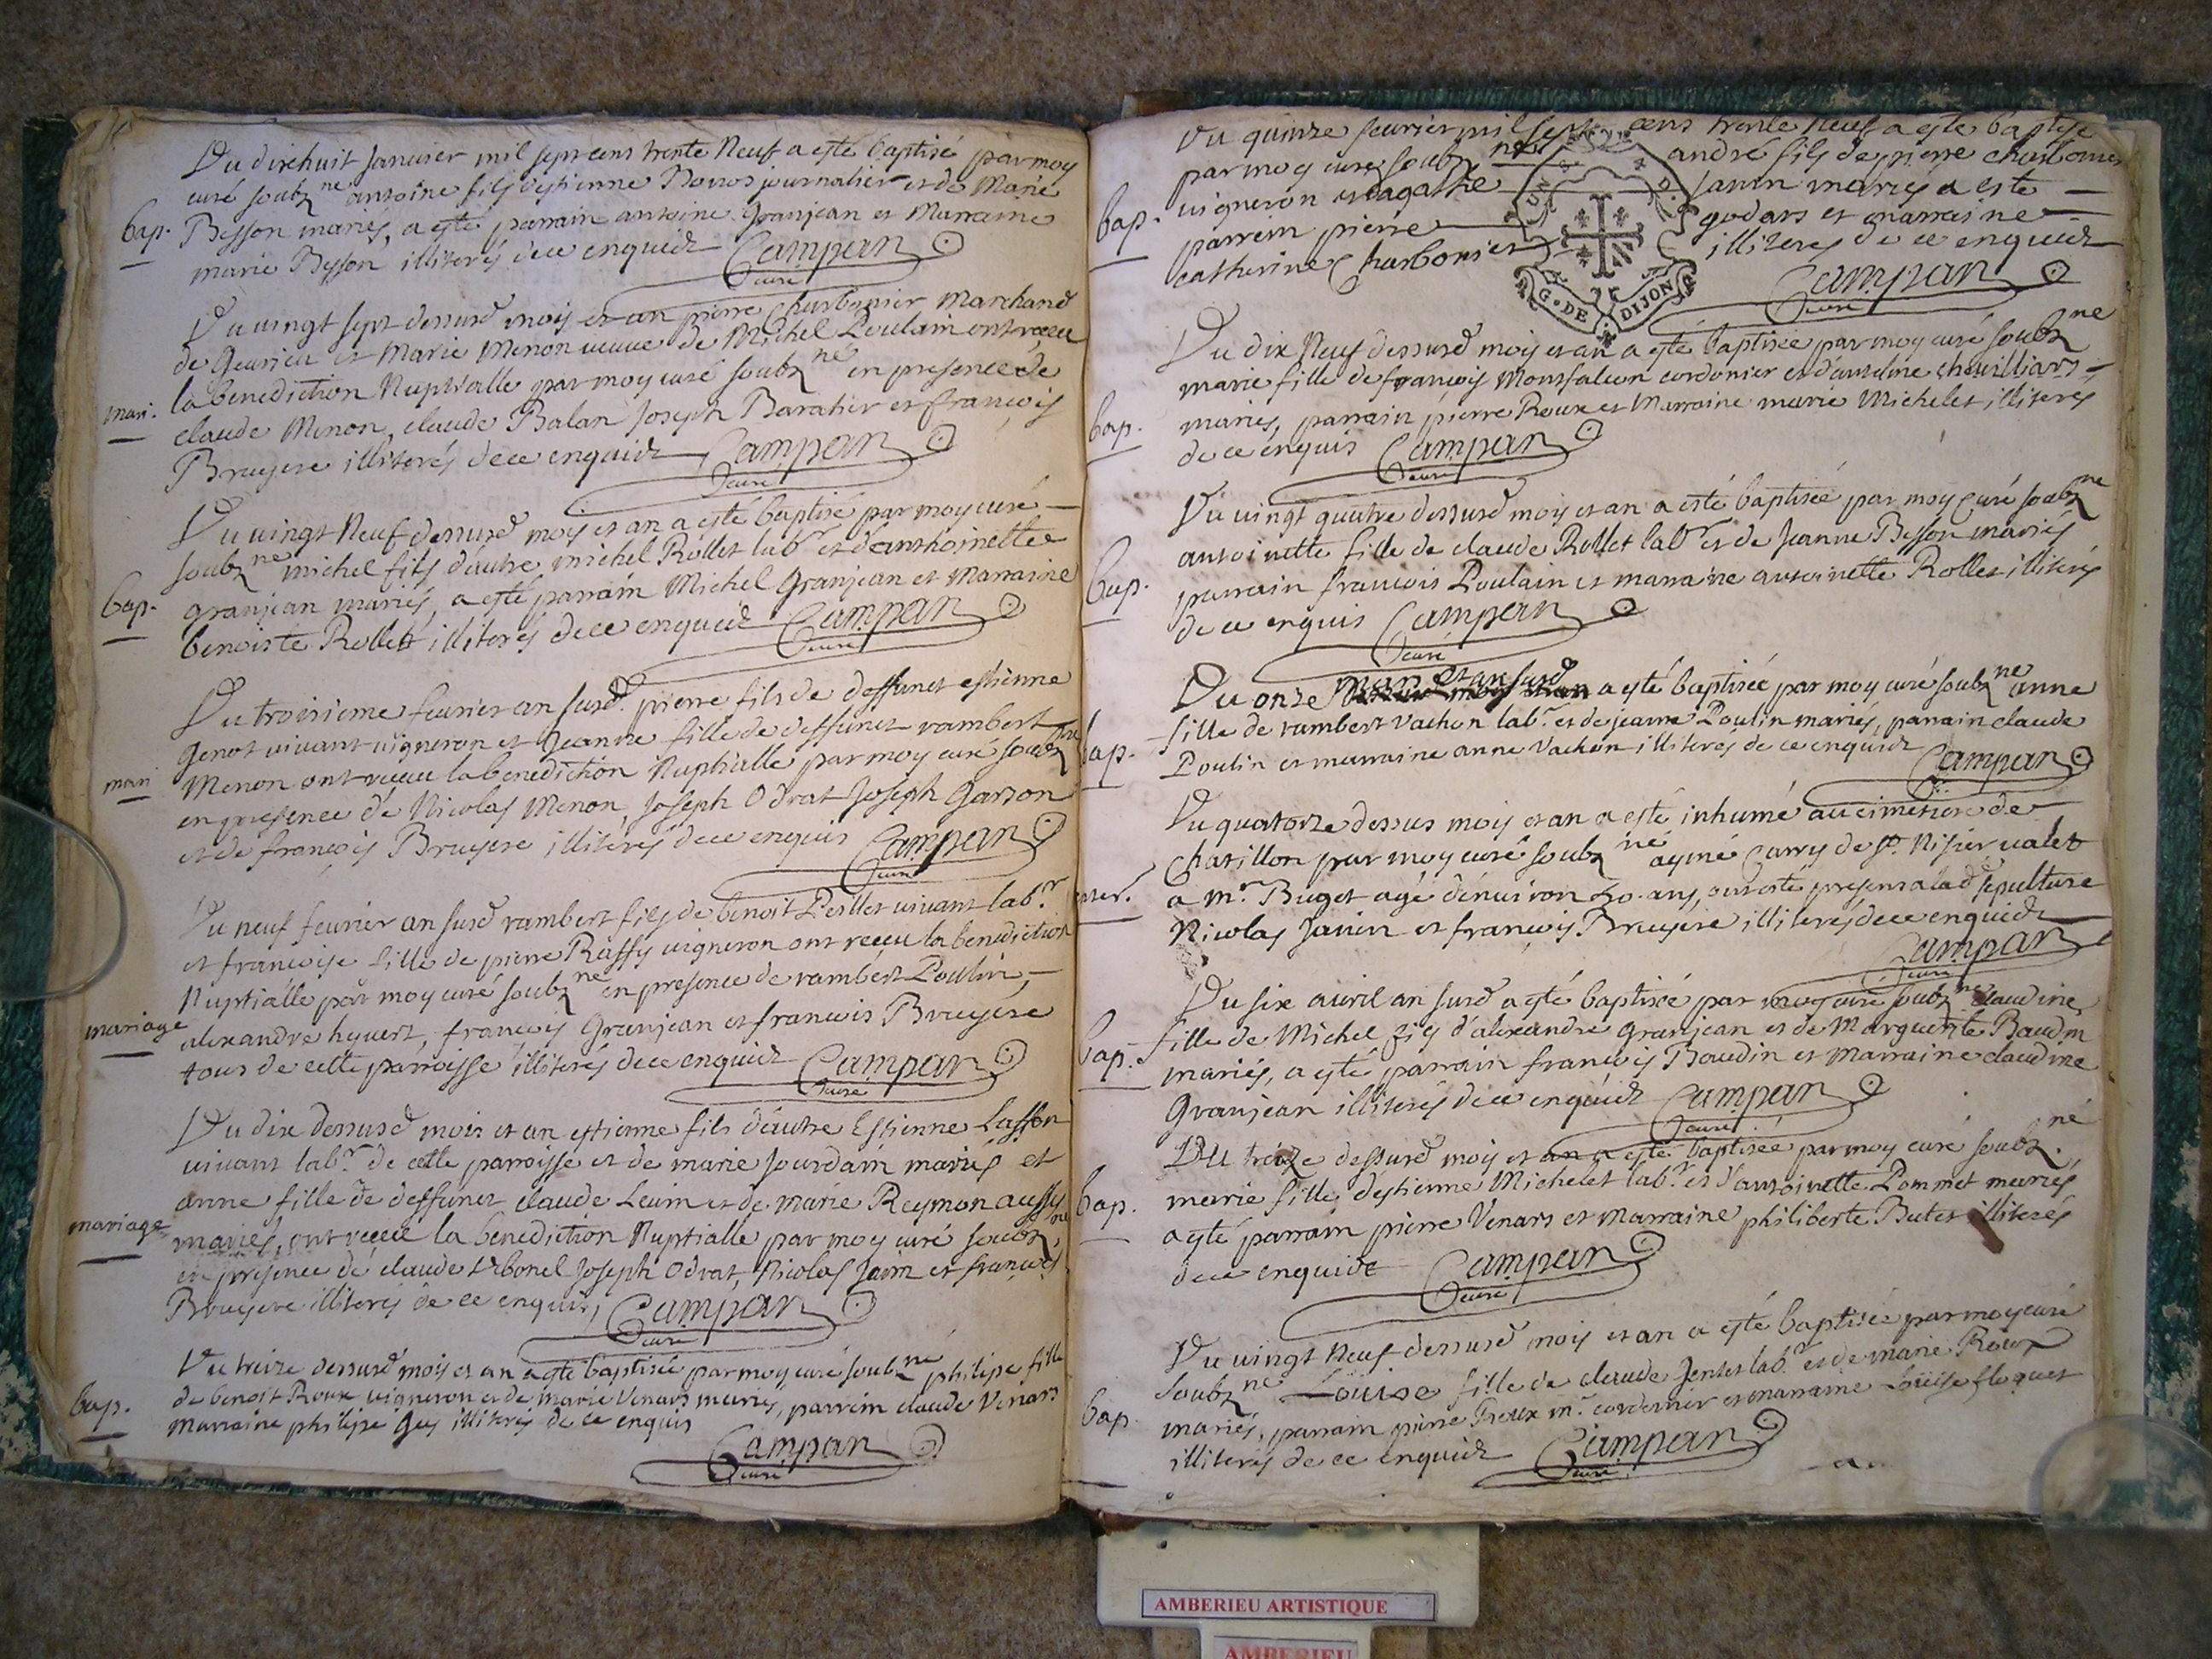 Du dixhuit Janvier mil sept cens trente Neuf a esté baptisé par moy
curé soubz.ne antoine fils d'estienne journalier et de Marie
bap. Besson mariés, a esté parrain antoine Granjean et Marraine
marie Besson illiterés de ce enquidz Campan
curé
Du vingt sept dessusd mois et an pierre Charbonier Marchand
de et Marie Menon veuve de Michel Poulain ont receu
la benediction Nuptialle par moy curé soubz.ne en presence de
mari. claude Menon, claude Balan Joseph Baratier et françois
Bruyere illiterés de ce enquidz Campan
curé
Du vingt Neuf dessusd mois et an a esté baptisé par moy curé
soubz.ne michel fils d'autre michel Rollet labr. et d'anthoinette
bap. granjean mariés, a esté parrain Michel Granjean et Marraine
benoiste Rollet illiterés de ce enquidz Campan
curé
Du troisieme fevrier an susd. pierre fils de deffunct estienne
Genot vivant vigneron et Jeanne fille de deffunct rambert
mari Menon ont receu la benediction Nuptialle par moy curé soubz.ne
en presence de Nicolas Menon, Joseph Odrat Joseph Garson
et de françois Bruyere illiterés de ce enquis Campan
curé
Du neuf fevrier an susd rambert fils de benoit vivant labr.
et françoise fille de pierre vigneron ont receu la benediction
Nuptialle par moy curé soubz.ne en presence de rambert Poulin,
mariage alexandre françois Granjean et francois Bruyere
tous de cette parroisse illiterés de ce enquidz Campan
curé
Du dix dessusd mois et an estienne fils d'autre Estienne Lasson
vivant labr. de cette parroisse et de marie Jourdain mariés et
anne fille de deffunct claude et de marie Reymon aussy
mariage mariés, ont receu la benediction Nuptialle par moy curé soubz.ne
en presence de claude Joseph Odrat, Nicolas Janin et françois
Bruyere illiterés de ce enquis, Campan
curé
Du treize dessusd mois et an a esté baptisée par moy curé soubz.ne philipe fille
bap. de benoit Roux vigneron et de marie Venars mariés, parrein claude Venars
marraine philipe illiterés de ce enquis
Campan
curé
Du quinze fevrier mil sept cens trente Neuf a esté baptisé
par moy curé soubz.ne andré fils de pierre charbonier
bap. vigneron et agathe Janin mariés a esté
parrein pierre godars et marraine
catherine Charbonier illiterés de ce enquidz
G. DE DIJON
Campan
curé
Du dix Neuf dessusd mois et an a esté baptisée par moy curé soubz.ne
marie fille de françois Monfalcon cordonier et
bap. mariés, parrain pierre Roux et Marraine marie Michelet illiterés
de ce enquis Campan
curé
Du vingt quatre dessusd mois et an a esté baptisée par moy curé soubz.ne
antoinette fille de claude Rollet labr. et de Jeanne Besson mariés
bap. parrain francois Poulain et marraine antoinette Rollet illiterés
de ce enquis Campan
curé
Du onze mars et an susd a esté baptisée par moy curé soubz.ne anne
bap. fille de rambert Vachon labr. et de jeanne Poulin mariés, parrain claude
Poulin et marraine anne Vachon illiterés de ce enquidz
Campan
Du quatorze dessus mois et an a esté inhumé au cimetiere de
Chatillon par moy curé soubz.ne aymé Carry de St. Nisier valet
enter. a mr. Buget agé d'environ ans, ont esté presens a lad sepulture
Nicolas Janin et françois Bruyere illiterés de ce enquidz
Campan
curé
Du six avril an susd a esté baptisée par moy curé soubz.ne claudine
bap. fille de Michel fils d'alexandre Granjean et de Marguerite Baudin
mariés, a esté parrain françois Baudin et Marraine claudine
Granjean illiterés de ce enquidz Campan
curé
Du treize dessusd mois et an a esté baptisée par moy curé soubz.né
bap. marie fille d'estienne Michelet labr. et d'antoinette Pommet mariés
a esté parrain pierre Venars et Marraine philiberte Butet illiterés
de ce enquidz Campan
curé
Du vingt Neuf dessusd mois et an a esté baptisée par moy curé
soubz.ne Louise fille de claude labr. et de marie Roux
bap mariés, parrain pierre Roux mr. cordonnier et marraine Loüise floquet
illiterés de ce enquidz Campan
curé
AMBERIEU ARTISTIQUE
AMBERIEU